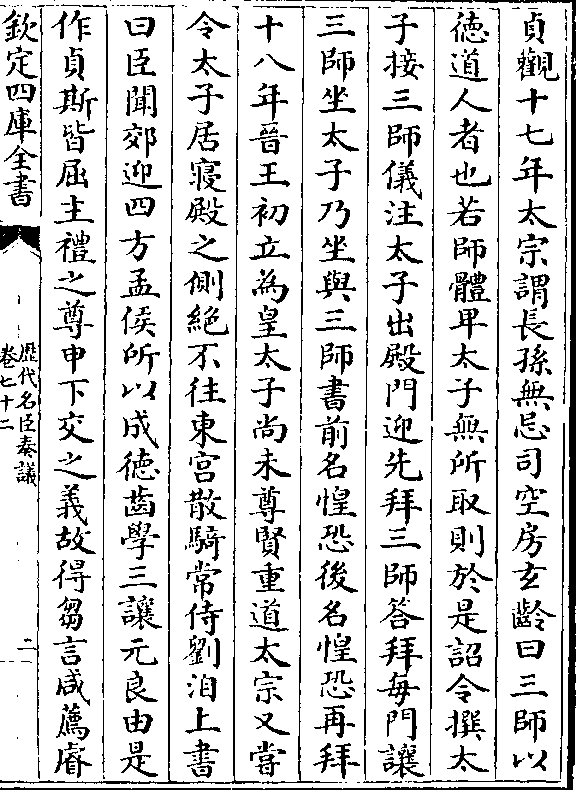 貞觀十七年太宗謂長孫無忌司空房玄齡曰三師以
徳道人者也若師體卑太子無所取則於是詔令撰太
子接三師儀注太子出殿門迎先拜三師答拜每門讓
三師坐太子乃坐與三師書前名惶恐後名惶恐再拜
十八年晉王初立為皇太子尚未尊賢重道太宗又嘗
令太子居寢殿之側絶不往東宮散騎常侍劉洎上書
曰臣聞郊迎四方孟侯所以成徳齒學三讓元良由是
作貞斯皆屈主禮之尊申下交之義故得芻言咸薦睿
欽定四庫全書
歴代名臣奏議
卷七十二
二